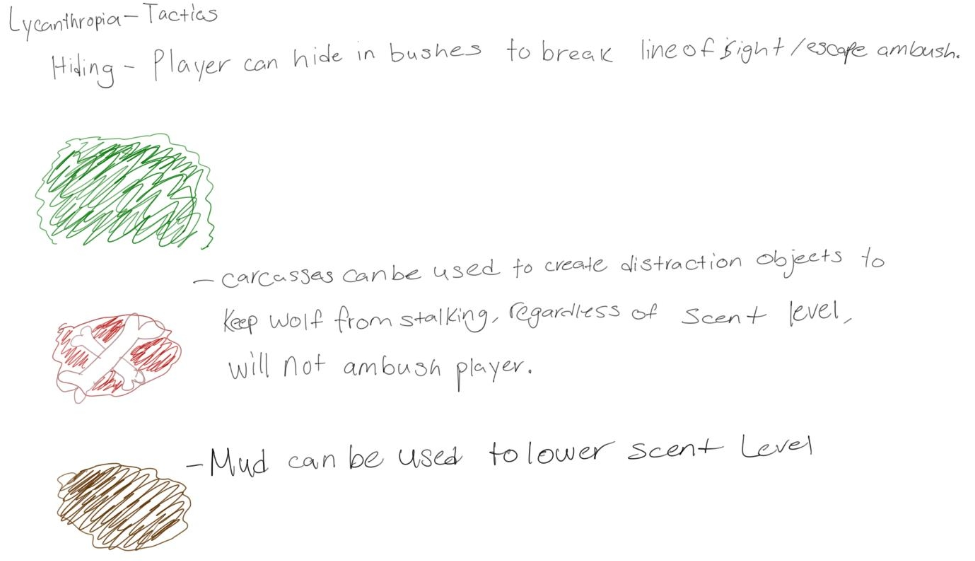 Lycanthropia - Tactics
Hiding - Player can hide in bushes to break line of sight/escape ambush.
- carcasses can be used to create distraction objects to
keep wolf from stalking, regardless of scent level,
will not ambush player.
- Mud can be used to lower scent Level